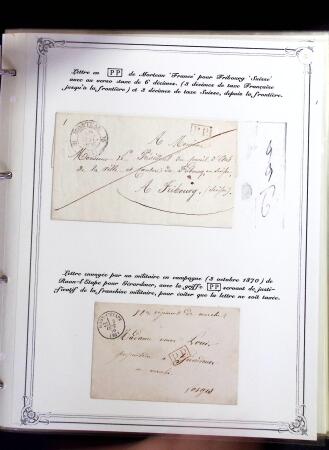 Lettre en PP de Morteau "France" pour Fribourg "Suisse"
avec au verso taxe de 6 décimes. (3 décimes de taxe Française
jusqu'à la frontière) et 3 décimes de taxe Suisse, depuis la frontière.
PP
A Monsieur
Monsieur le Président du Conseil d'Etat
de la ville et Canton de Fribourg en Suisse
A Fribourg (Suisse)
Lettre envoyée par un militaire en campagne (3 octobre 1870) de
Raon-l'Etape pour Gérardmer, avec la griffe PP servant de justi-
ficatif de la franchise militaire, pour éviter que la lettre ne soit taxée.
régiment de marche
Madame
PP
Vosges